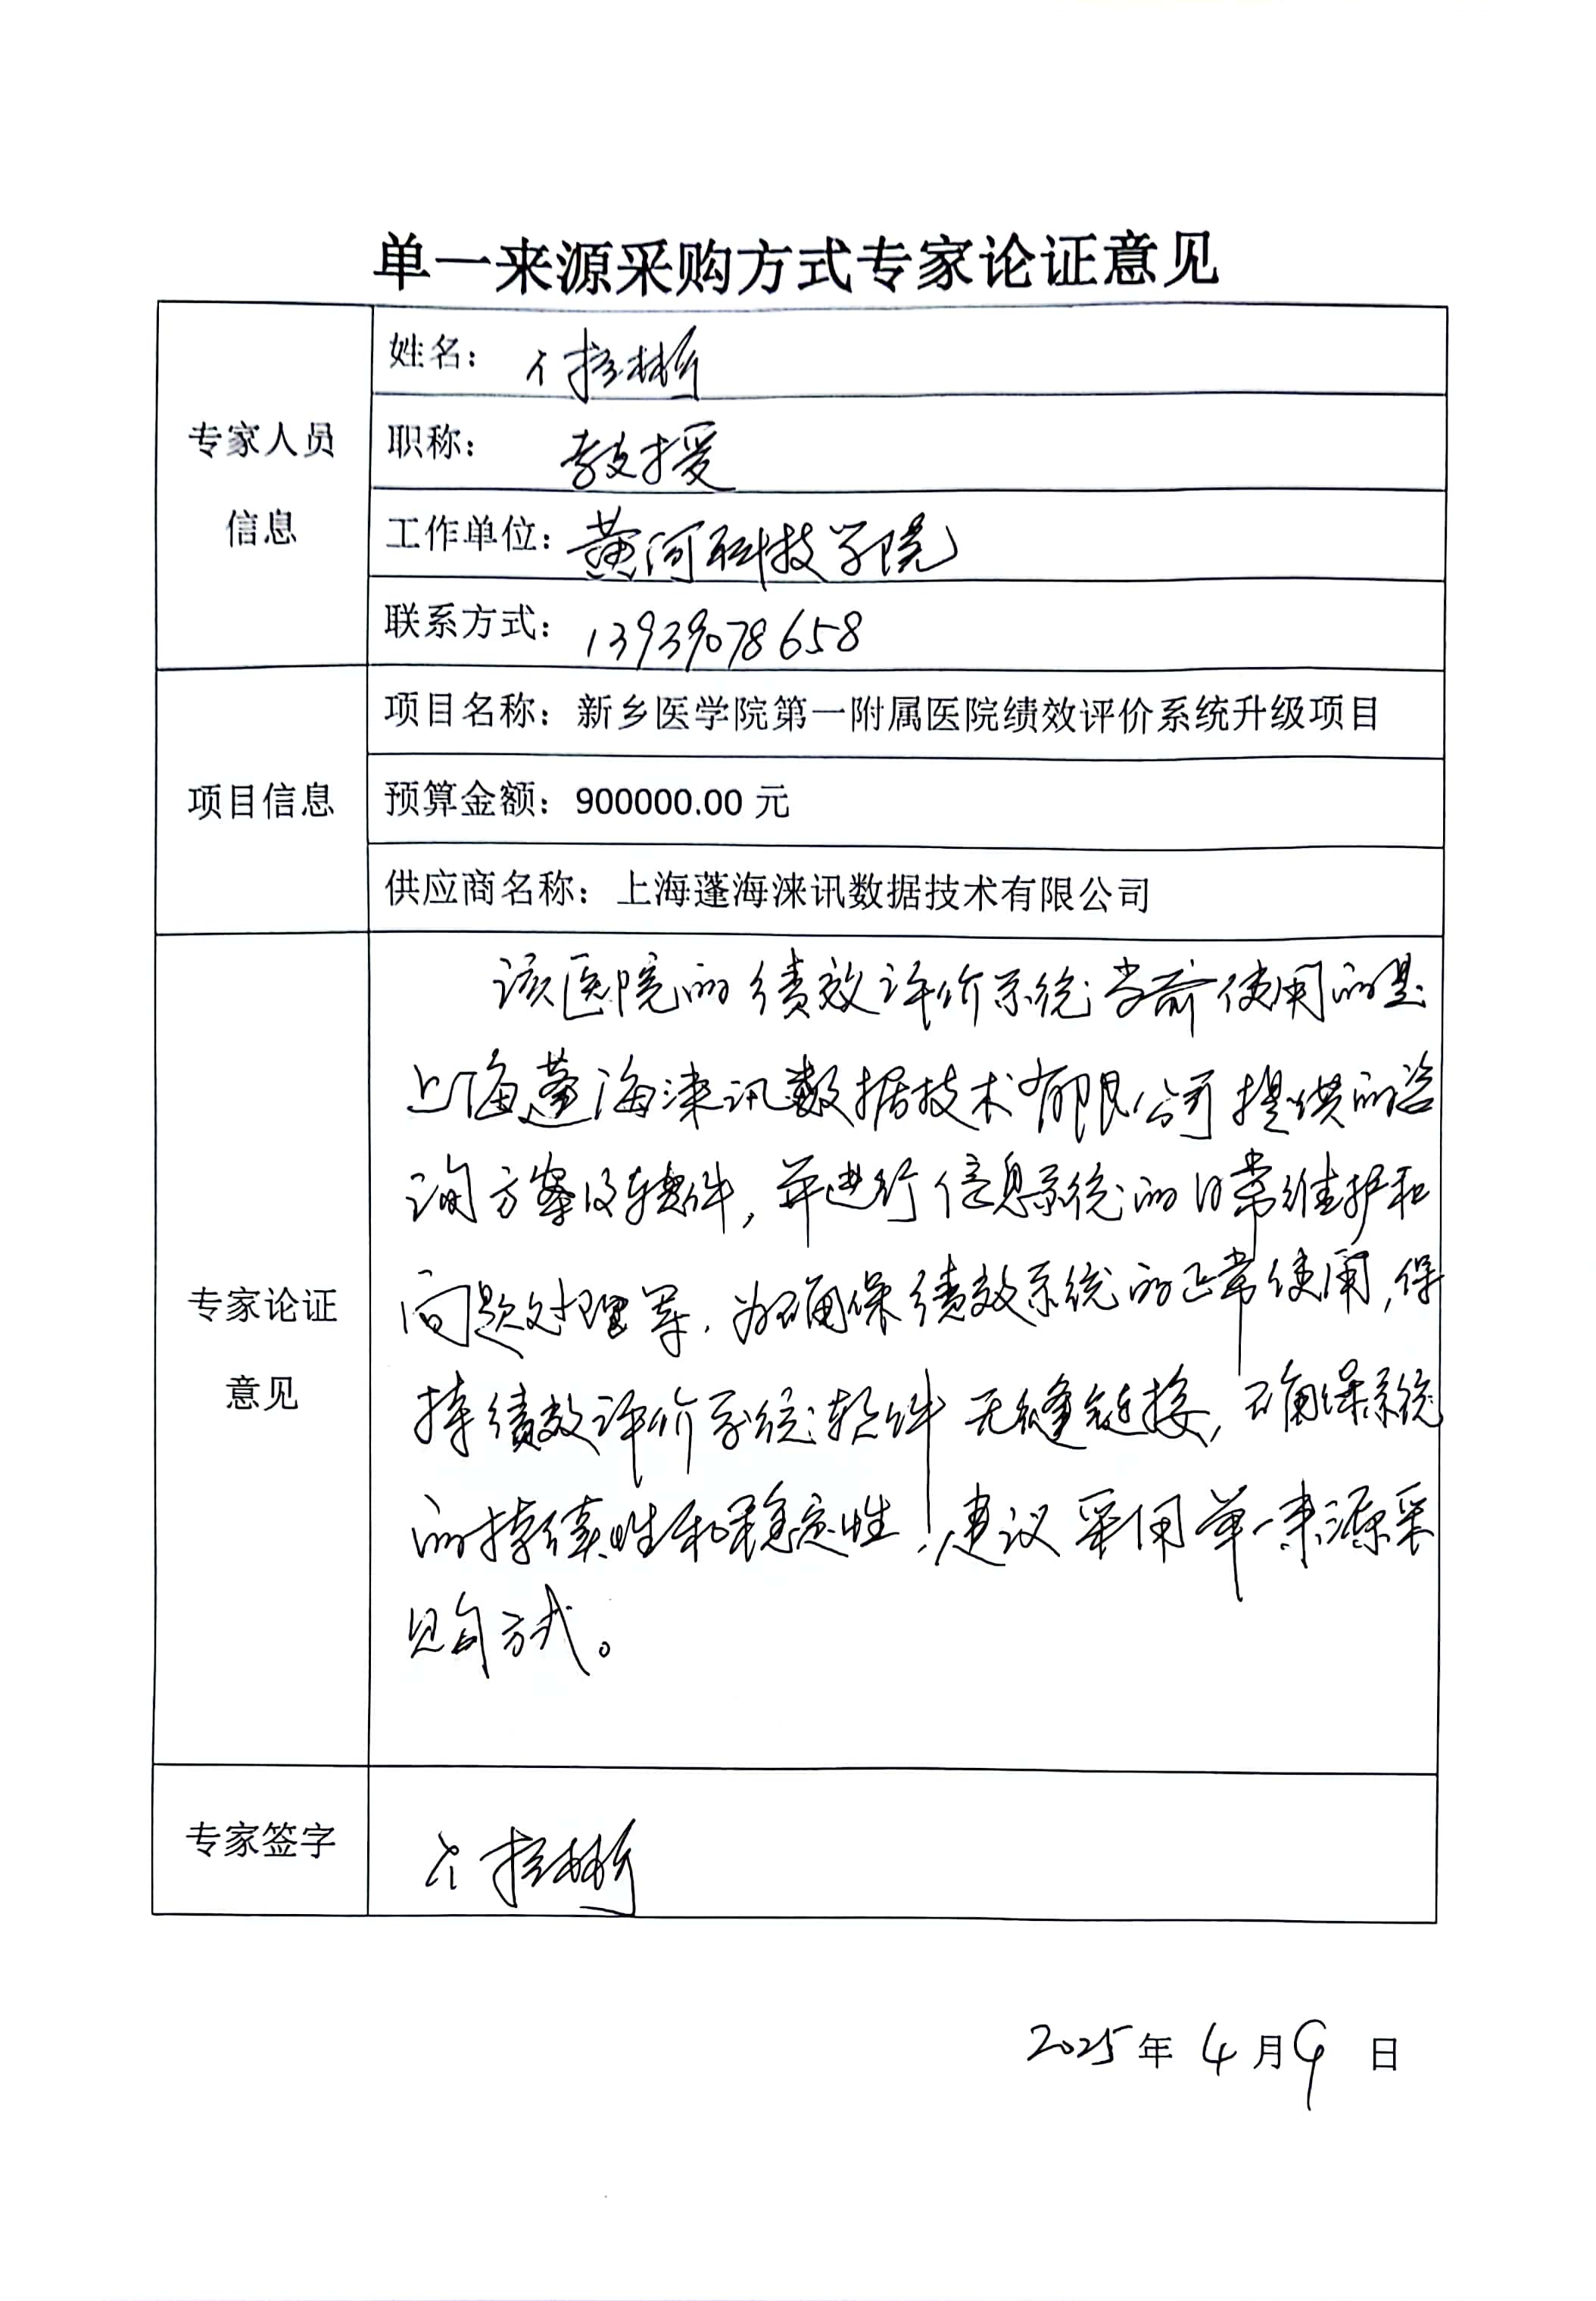 单一来源采购方式专家论证意见
专家人员
信息
姓名：
职称： 教授
工作单位：黄河科技学院
联系方式：13939078658
项目信息
项目名称：新乡医学院第一附属医院绩效评价系统升级项目
预算金额：900000.00 元
供应商名称：上海蓬海涞讯数据技术有限公司
专家论证
意见
该医院的绩效评价系统当前使用的是
上海蓬海涞讯数据技术有限公司提供的咨
询方案及软件，并进行信息系统的日常维护和
问题处理等。为确保绩效系统的正常使用，保
持绩效评价系统软件无缝链接，确保系统
的持续性和稳定性，建议采用单一来源采
购方式。
专家签字
2025年4月9日